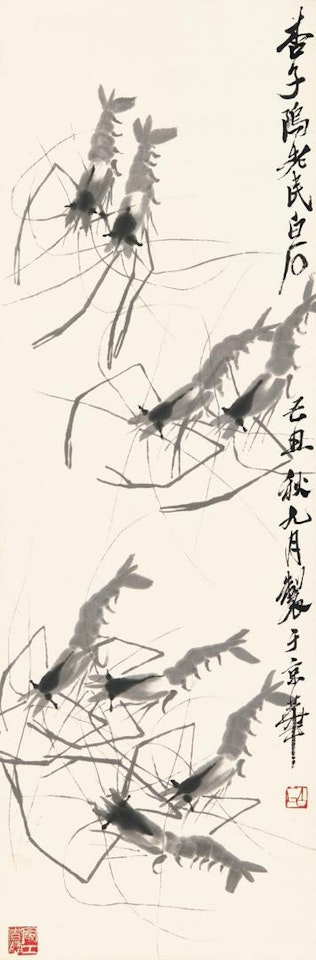 杏子隖老民白石 己丑秋九月製于京華